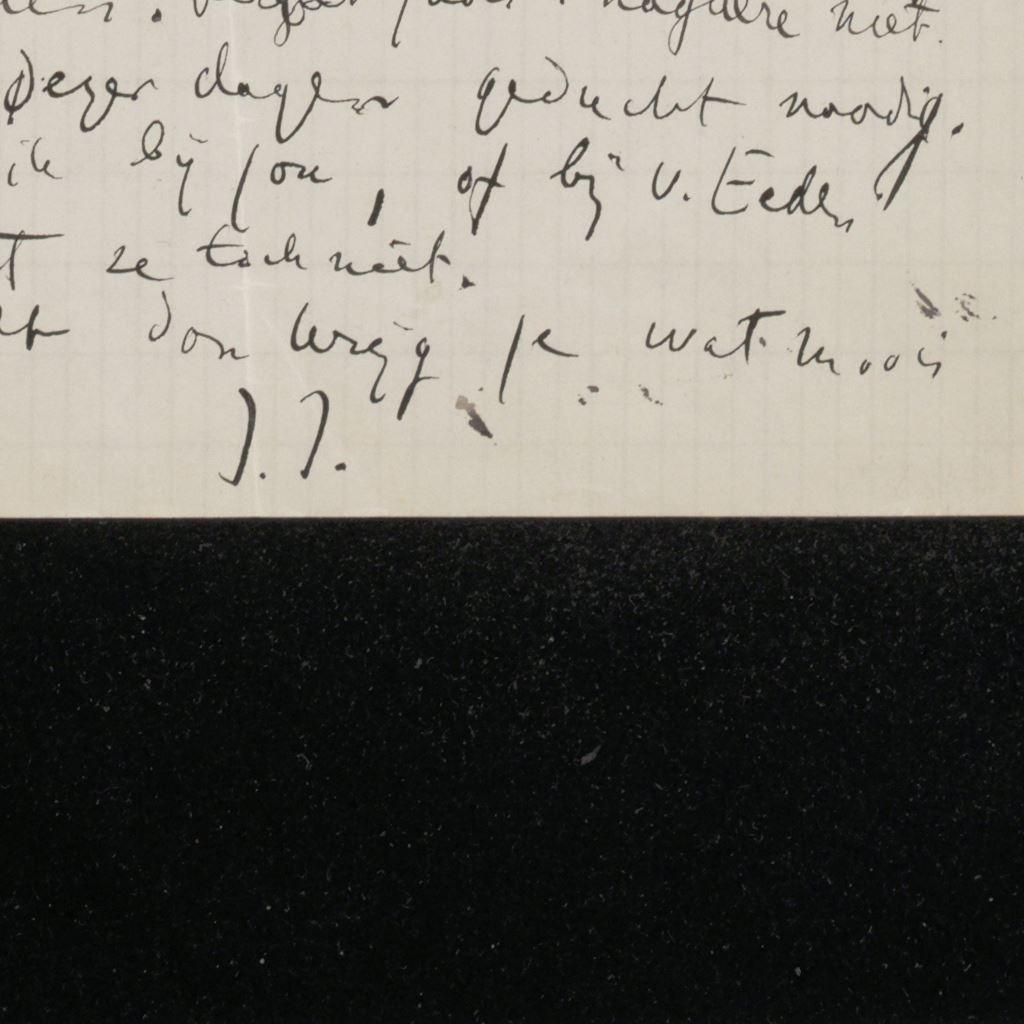 niet.
dezer dagen geducht noodig.
ik bij jou, of bij v. Eeden
ze toch niet.
dan krijg je wat moois
J. J.